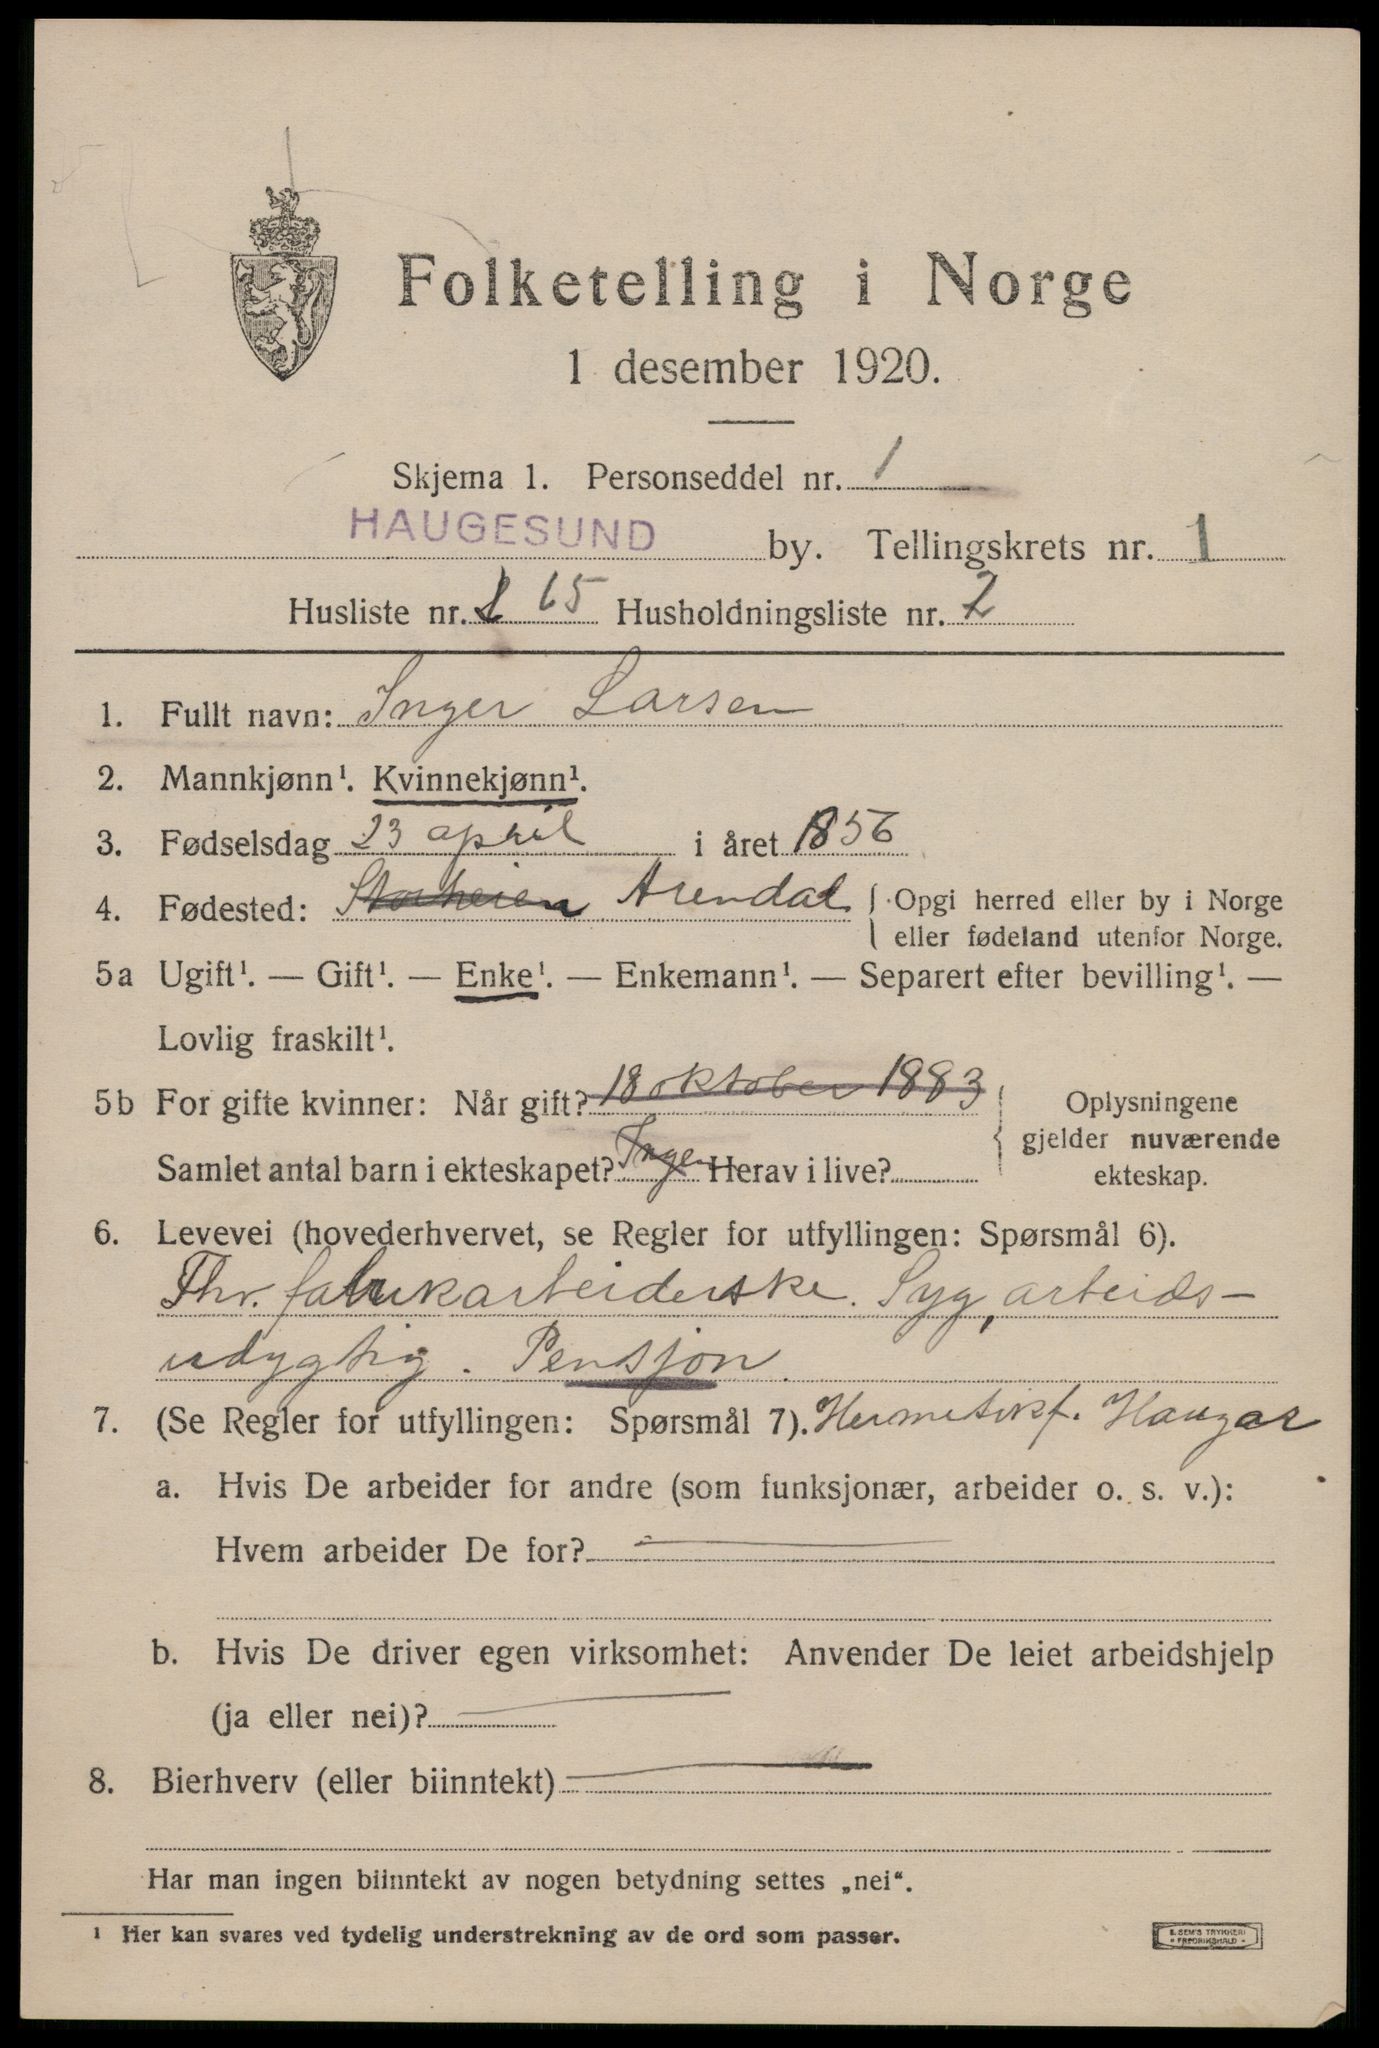 Folketelling i Norge
1 desember 1920.
Skjema 1. Personseddel nr. 1
HAUGESUND by. Tellingskrets nr. 1
Husliste nr. 65 Husholdningsliste nr. 2
1. Fullt navn: Inger Larsen
2. Mannkjønn¹. Kvinnekjønn¹.
3. Fødselsdag 23 april i året 1856
4. Fødested: Storheien Arendal { Opgi herred eller by i Norge
eller fødeland utenfor Norge.
5a Ugift¹. — Gift¹. — Enke¹. — Enkemann¹. — Separert efter bevilling¹. —
Lovlig fraskilt¹.
5b For gifte kvinner: Når gift? 18 oktober 1883
Samlet antal barn i ekteskapet? Ingen Herav i live?
Oplysningene
gjelder nuværende
ekteskap.
6. Levevei (hovederhvervet, se Regler for utfyllingen: Spørsmål 6).
Fhv. fabrikarbeiderske. Syg, arbeids-
udygtig. Pensjon.
7. (Se Regler for utfyllingen: Spørsmål 7). Hermetikf. Haugar
a. Hvis De arbeider for andre (som funksjonær, arbeider o. s. v.):
Hvem arbeider De for? —
b. Hvis De driver egen virksomhet: Anvender De leiet arbeidshjelp
(ja eller nei)? —
8. Bierhverv (eller biinntekt) —
Har man ingen biinntekt av nogen betydning settes „nei“.
¹ Her kan svares ved tydelig understrekning av de ord som passer.
E. SEM'S TRYKKERI
- FREDRIKSHALD -